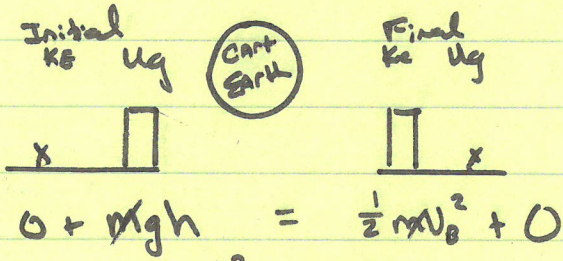 Initial
KE Ug
Cart
Earth
Final
KE Ug
x
x
0 + mgh = ½ mv_B² + 0